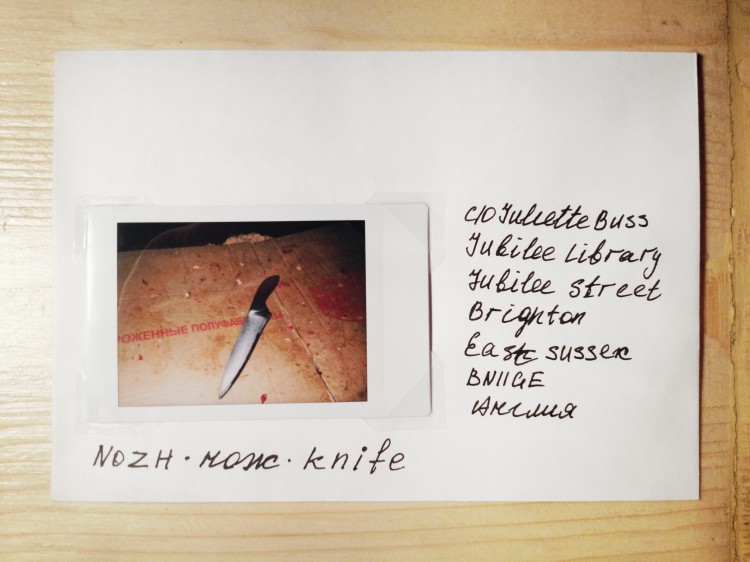 РОЖЕННЫЕ ПОЛУФАВ
NOZH · нож · knife
C/O Juliette Buss
Jubilee Library
Jubilee Street
Brighton
East Sussex
BN11GE
Англия